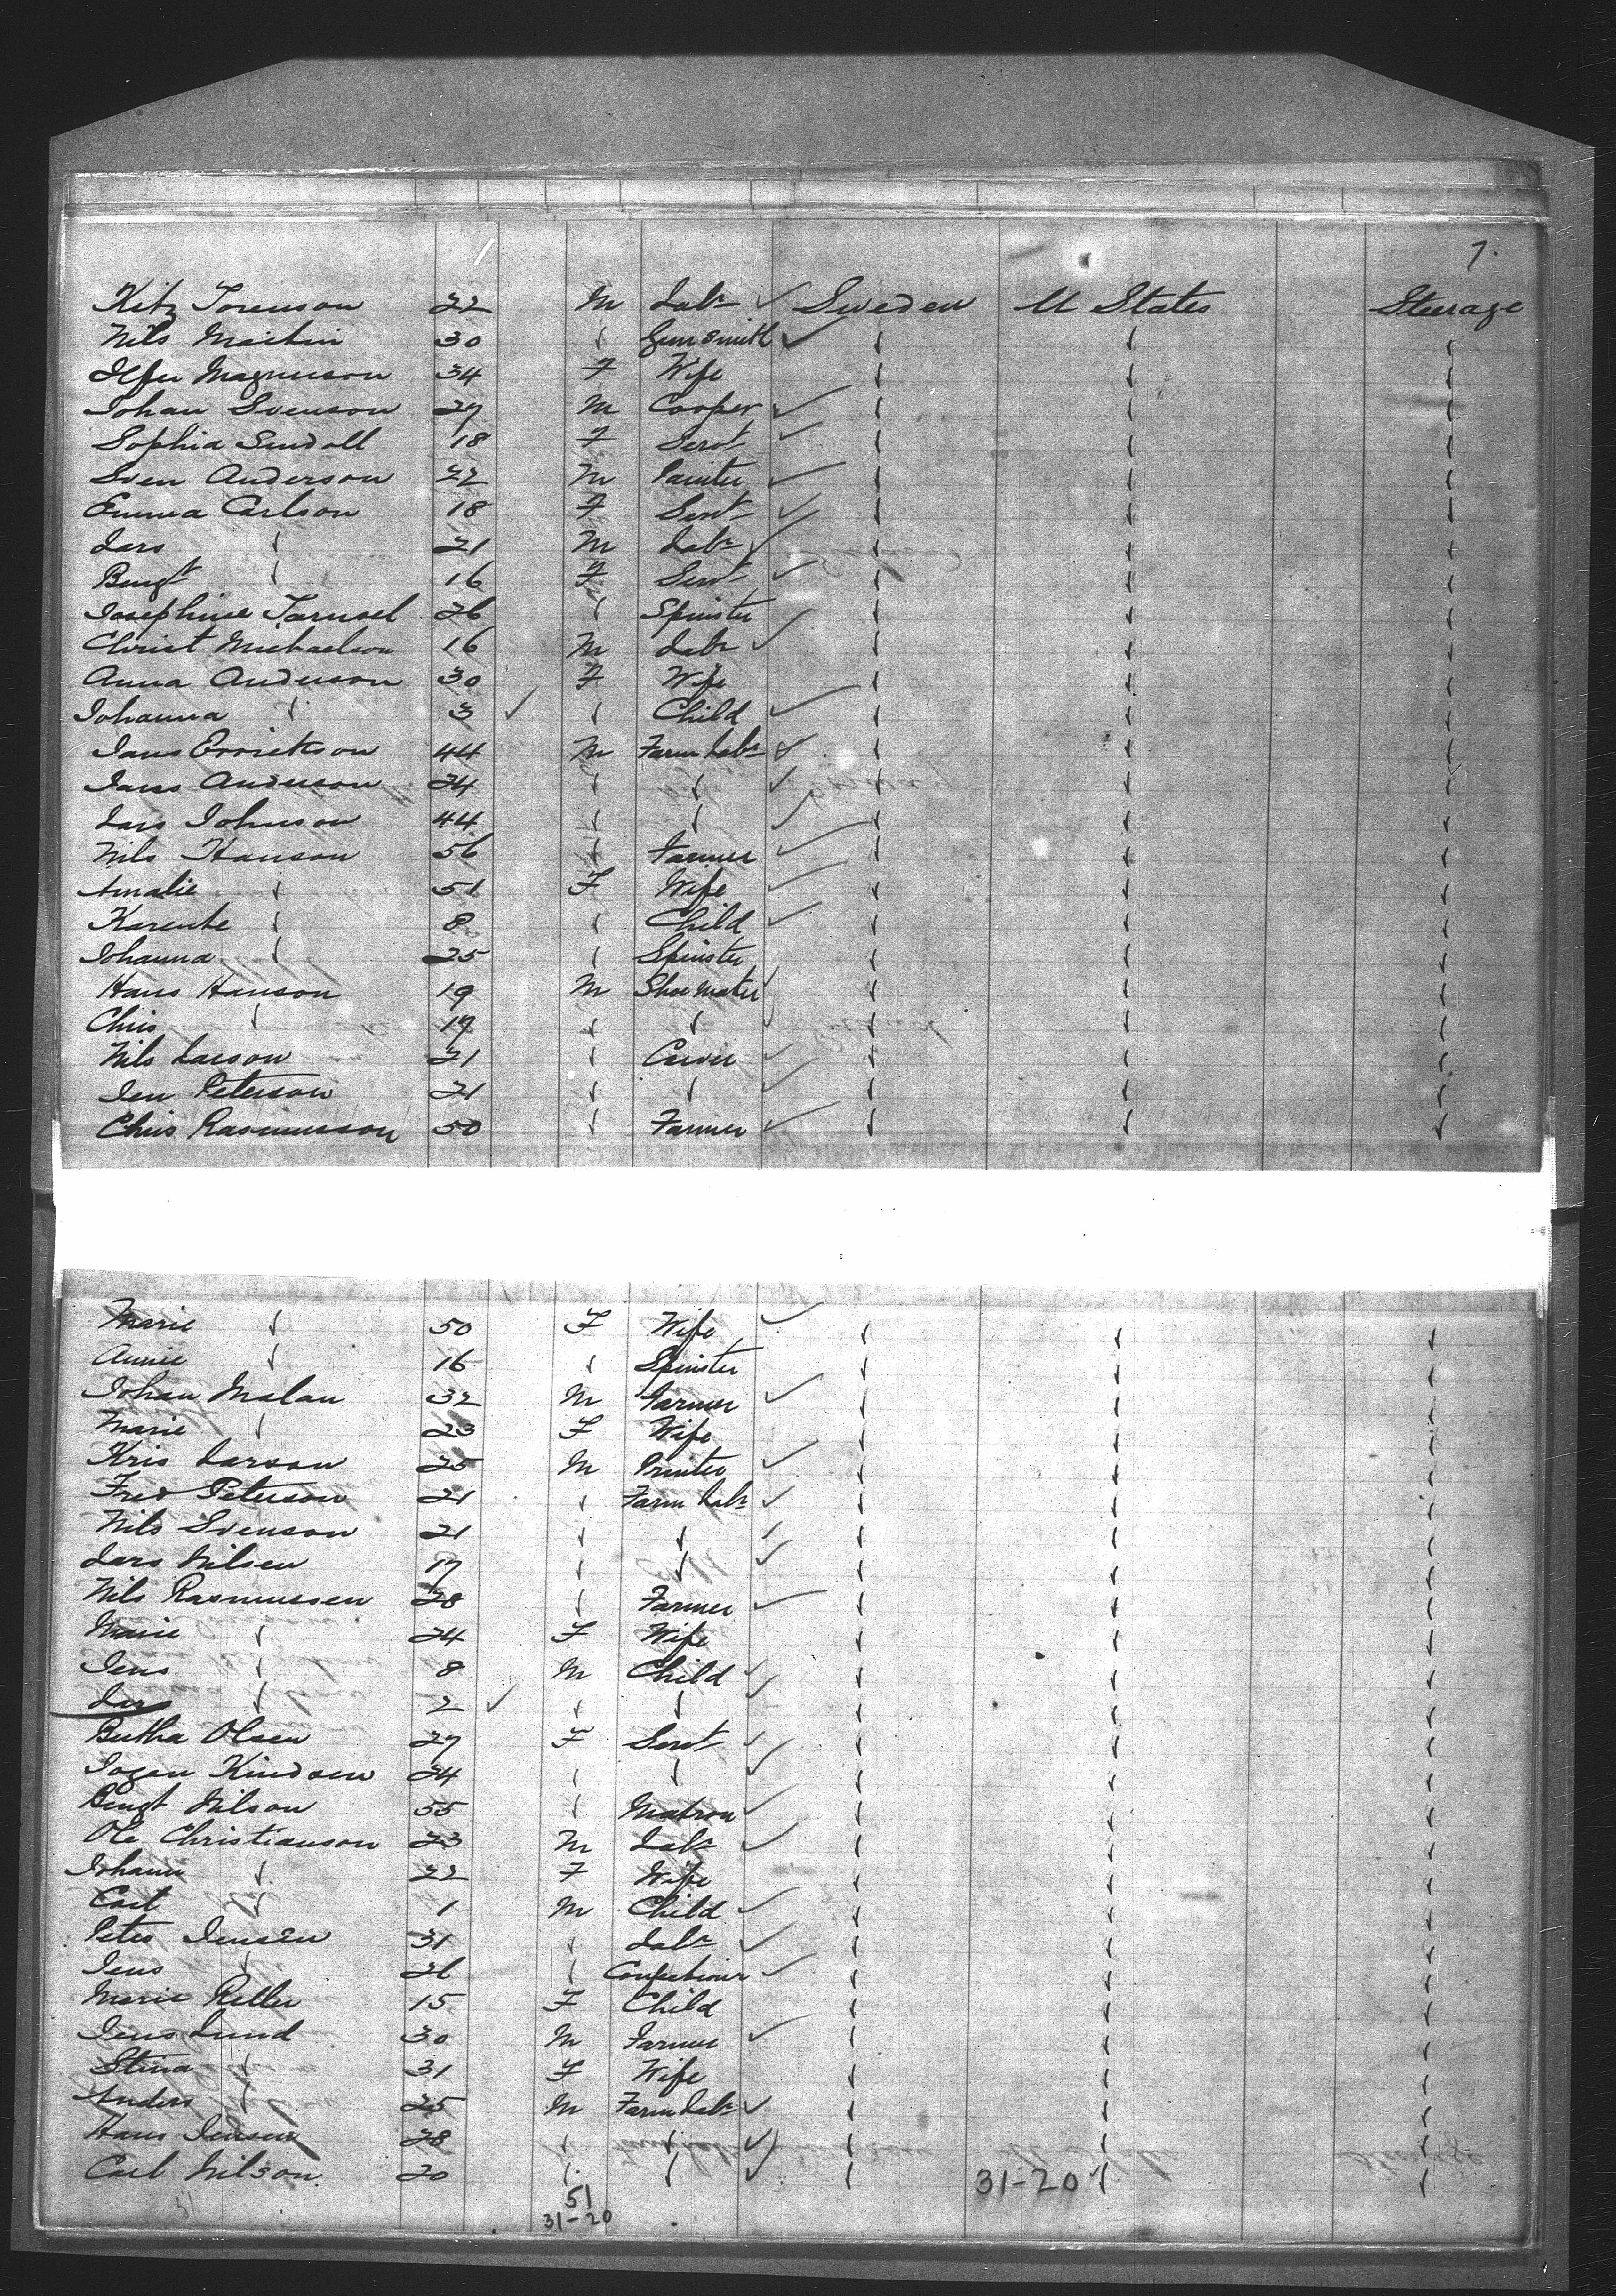 7.
Torenson 22 M Labr ✓ Sweden U States Steerage
Nils Martin 30 " Gunsmith ✓ " " "
Magnusson 34 F Wife " " "
Johan Svenson 27 M Cooper ✓ " " "
Sophia 18 F Servt ✓ " " "
Sven Anderson 22 M Painter ✓ " " "
Emma Carlson 18 F Servt ✓ " " "
Lars " 21 M Labr ✓ " " "
Bengt " 16 F Servt ✓ " " "
Josephine 26 " Spinster " " "
Christ Michaelson 16 M Labr ✓ " " "
Anna Anderson 30 F Wife " " "
Johanna " 3 ✓ " Child ✓ " " "
Jans Errickson 44 M Farm Labr ✓ " " "
Anderson 24 " " ✓ " " "
Lars Johnson 44 " " ✓ " " "
Nils Hanson 56 " Farmer ✓ " " "
Amalie " 51 F Wife ✓ " " "
Karente " 8 " Child ✓ " " "
Johanna " 25 " Spinster " " "
Hans Hanson 19 M Shoemaker ✓ " " "
Chris " 17 " " ✓ " " "
Nils Larson 21 " Carver ✓ " " "
Jen Peterson 21 " " ✓ " " "
Chris Rasmusson 50 " Farmer ✓ " " "
Marie " 50 F Wife ✓ " " "
Annie " 16 " Spinster " " "
Johan Malan 32 M Farmer ✓ " " "
Marie " 23 F Wife " " "
Kris Larson 25 M Printer ✓ " " "
Fred Peterson 21 " Farm Labr ✓ " " "
Nils Svenson 21 " " ✓ " " "
Lars Nilsen 17 " " ✓ " " "
Nils Rasmussen 28 " Farmer ✓ " " "
Marie " 24 F Wife " " "
Jens " 8 M Child ✓ " " "
Lars " 2 ✓ " " ✓ " " "
Bertha Olsen 27 F Servt ✓ " " "
24 " " ✓ " " "
Bengt Nilson 55 " Matron ✓ " " "
Ole Christianson 23 M Labr ✓ " " "
Johann " 22 F Wife " " "
Carl " 1 M Child ✓ " " "
Peter Jensen 31 " Labr ✓ " " "
Jens " 26 " ✓ " " "
Marie 15 F Child " " "
Jens Lund 30 M Farmer ✓ " " "
Stina " 31 F Wife " " "
Anders " 25 M Farm Labr ✓ " " "
Hans Jensen 28 " " ✓ " " "
Carl Nilson 20 " " ✓ " 31-20 " "
51
31-20